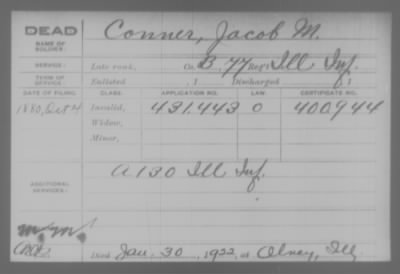 DEAD
Conner, Jacob M.
NAME OF SOLDIER:
SERVICE: Late rank, Co. B, 77 Reg't Ill Inf.
TERM OF SERVICE: Enlisted , 1 Discharged , 1
DATE OF FILING. CLASS. APPLICATION NO. LAW. CERTIFICATE NO.
1880, Oct 4 Invalid, 431.443 O 400,944
Widow,
Minor,
A 130 Ill Inf.
ADDITIONAL SERVICES:
Died Jan. 30, 1922, at Olney, Ill